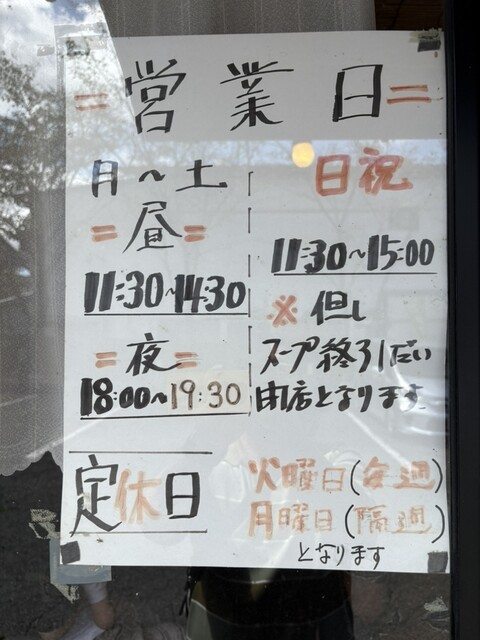 =営業日=
月〜土
=昼=
11:30〜14:30
=夜=
18:00〜19:30
日祝
11:30〜15:00
※但し
スープ終了しだい
閉店となります
定休日
火曜日(毎週)
月曜日(隔週)
となります